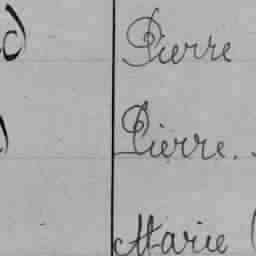 Pierre
Pierre.
Marie